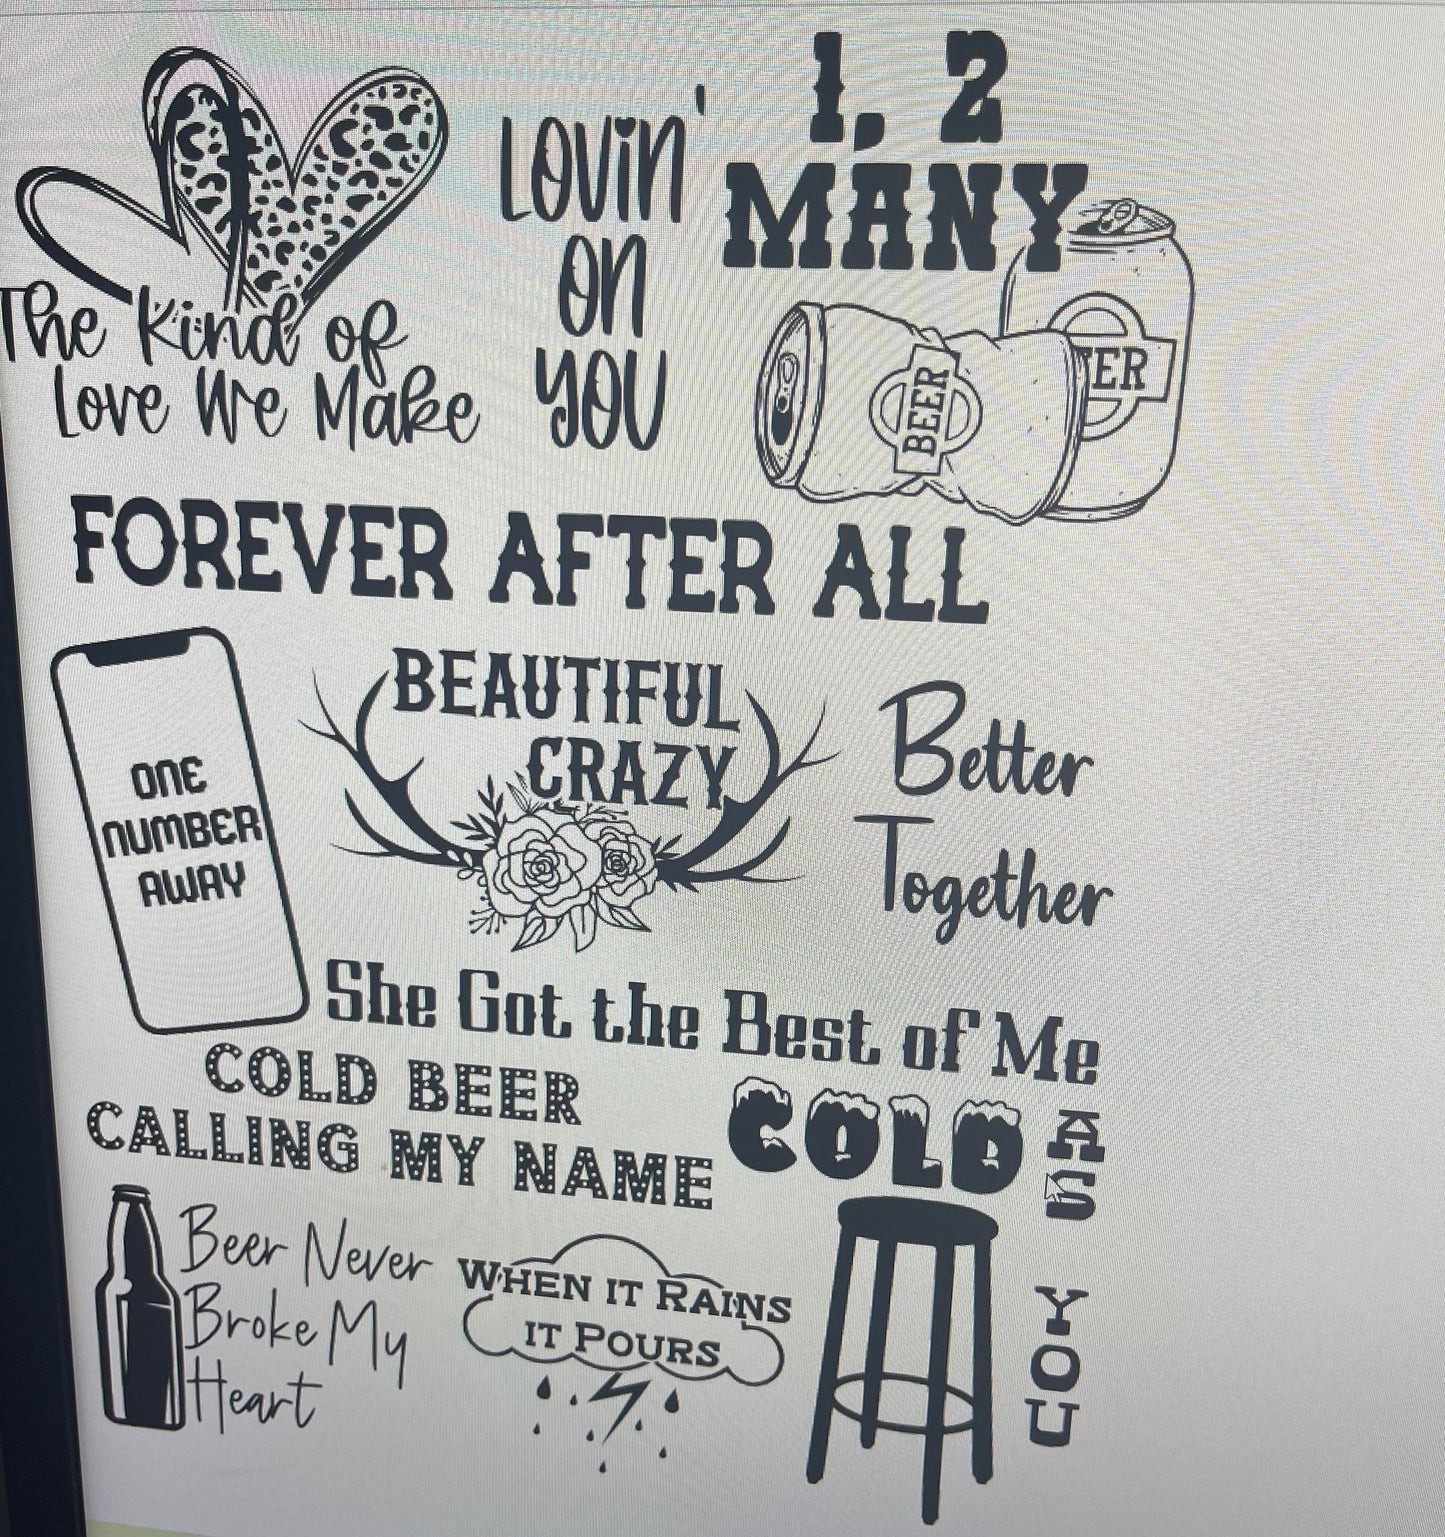 The Kind of
Love We Make
Lovin'
on
you
1, 2
MANY
BEER
ER
FOREVER AFTER ALL
ONE
NUMBER
AWAY
BEAUTIFUL
CRAZY
Better
Together
She Got the Best of Me
COLD BEER
CALLING MY NAME
COLD
AS
YOU
Beer Never
Broke My
Heart
WHEN IT RAINS
IT POURS